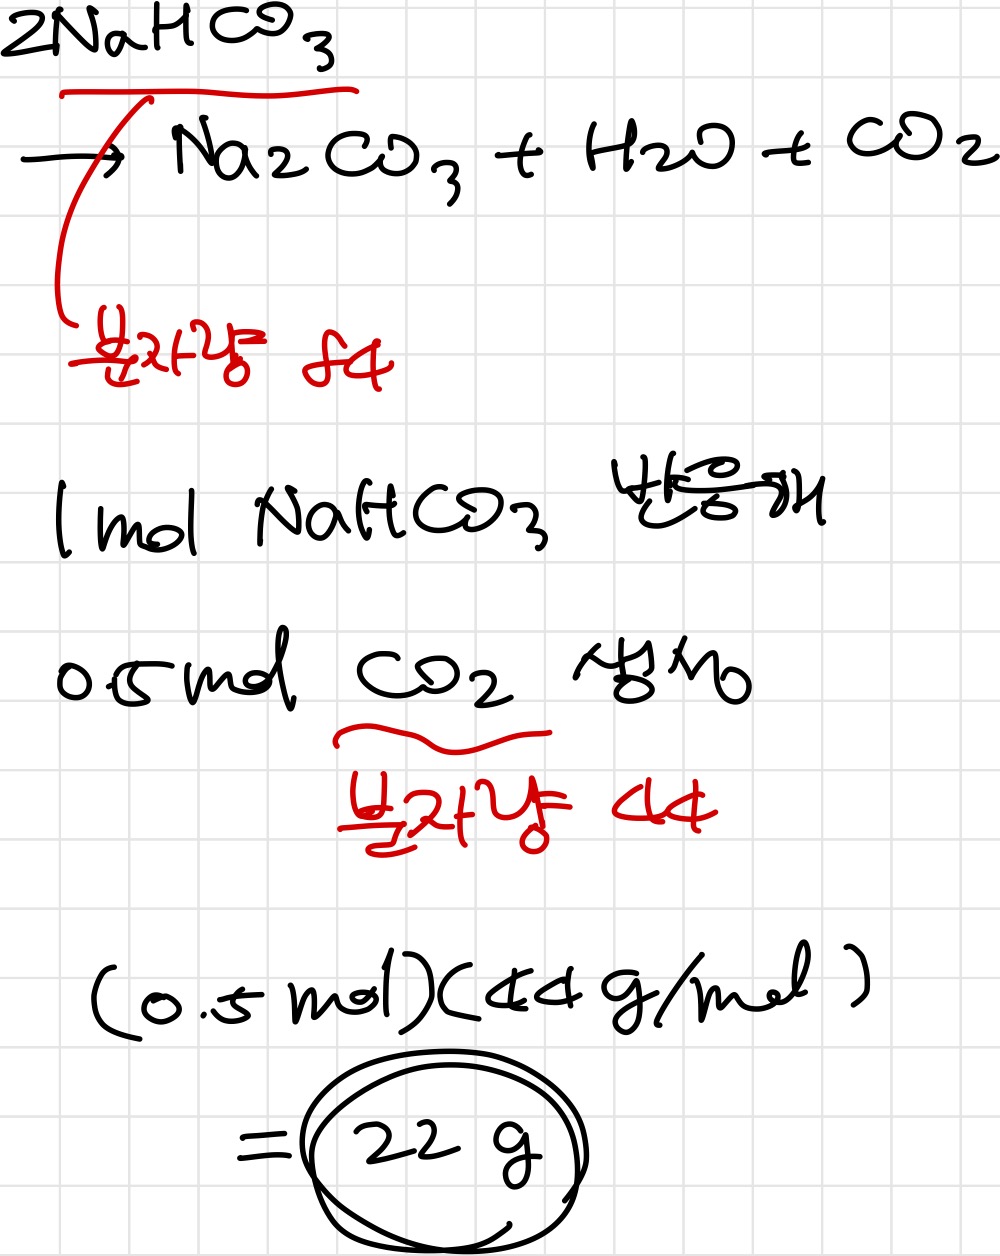 2NaHCO₃
→ Na₂CO₃ + H₂O + CO₂
분자량 84
1 mol NaHCO₃ 반응해
0.5 mol CO₂ 생성
분자량 44
(0.5 mol)(44 g/mol)
= 22 g